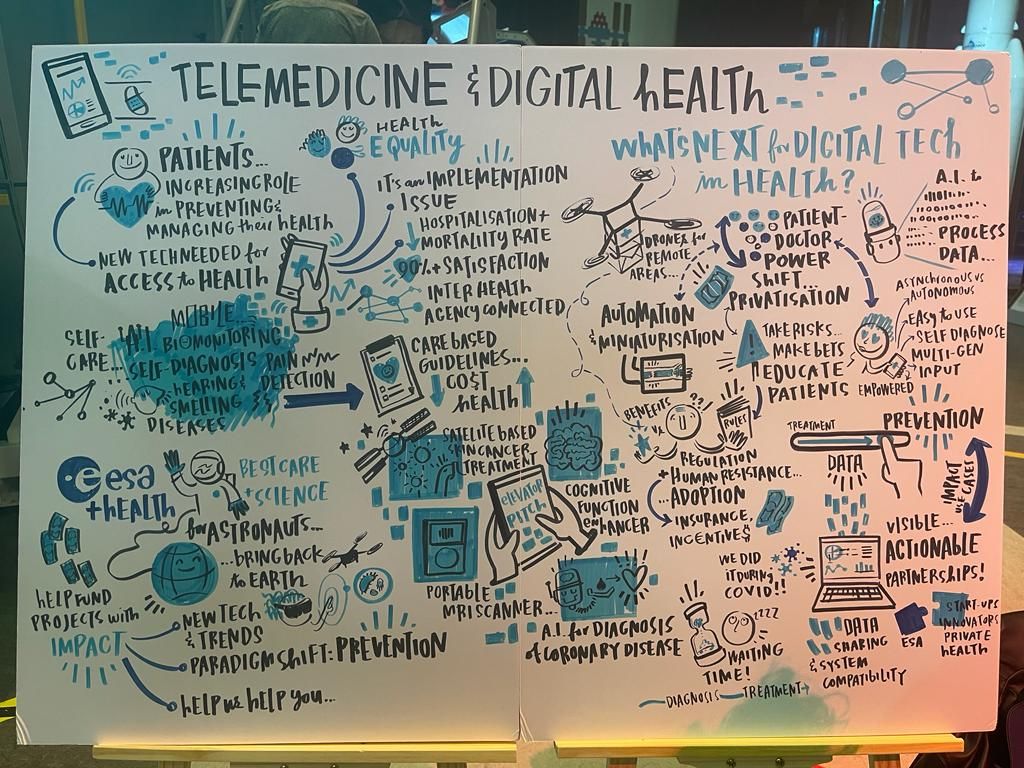 TELEMEDICINE & DIGITAL HEALTH
PATIENTS...
INCREASING ROLE
in PREVENTING &
MANAGING their HEALTH
NEW TECH NEEDED for
ACCESS to HEALTH
HEALTH
EQUALITY
IT's an IMPLEMENTATION
ISSUE
HOSPITALISATION +
MORTALITY RATE
90% + SATISFACTION
INTER HEALTH
AGENCY CONNECTED
SELF-
CARE...
A.I.
MOBILE
BIOMONITORING
SELF-DIAGNOSIS
HEARING &
SMELLING
DISEASES
PAIN
DETECTION
CARE BASED
GUIDELINES...
COST
HEALTH
esa
+ HEALTH
BEST CARE
+ SCIENCE
for ASTRONAUTS...
...BRING BACK
to EARTH
HELP FUND
PROJECTS with
IMPACT
NEW TECH
& TRENDS
PARADIGM SHIFT: PREVENTION
HELP us HELP YOU...
SATELITE BASED
SKIN CANCER
TREATMENT
ELEVATOR
PITCH
COGNITIVE
FUNCTION
ENHANCER
PORTABLE
MRI SCANNER...
A.I. for DIAGNOSIS
of CORONARY DISEASE
WHAT'S NEXT for DIGITAL TECH
in HEALTH?
DRONES for
REMOTE
AREAS...
PATIENT-
DOCTOR
POWER
SHIFT...
PRIVATISATION
A.I. to
PROCESS
DATA...
AUTOMATION
& MINIATURISATION
TAKE RISKS...
MAKE BETS
EDUCATE
PATIENTS
ASYNCHRONOUS vs
AUTONOMOUS
EASY to USE
SELF DIAGNOSE
MULTI-GEN
INPUT
EMPOWERED
BENEFITS
VS.
??
RULES
REGULATION
+ HUMAN RESISTANCE...
...ADOPTION
INSURANCE,
INCENTIVES
TREATMENT
PREVENTION
DATA
IMPACT
USE CASES
VISIBLE...
ACTIONABLE
PARTNERSHIPS!
WE DID
IT DURING
COVID!!
ZZZZ
WAITING
TIME!
DIAGNOSIS
TREATMENT
DATA
SHARING
& SYSTEM
COMPATIBILITY
ESA
START-UPS
INNOVATORS
PRIVATE
HEALTH